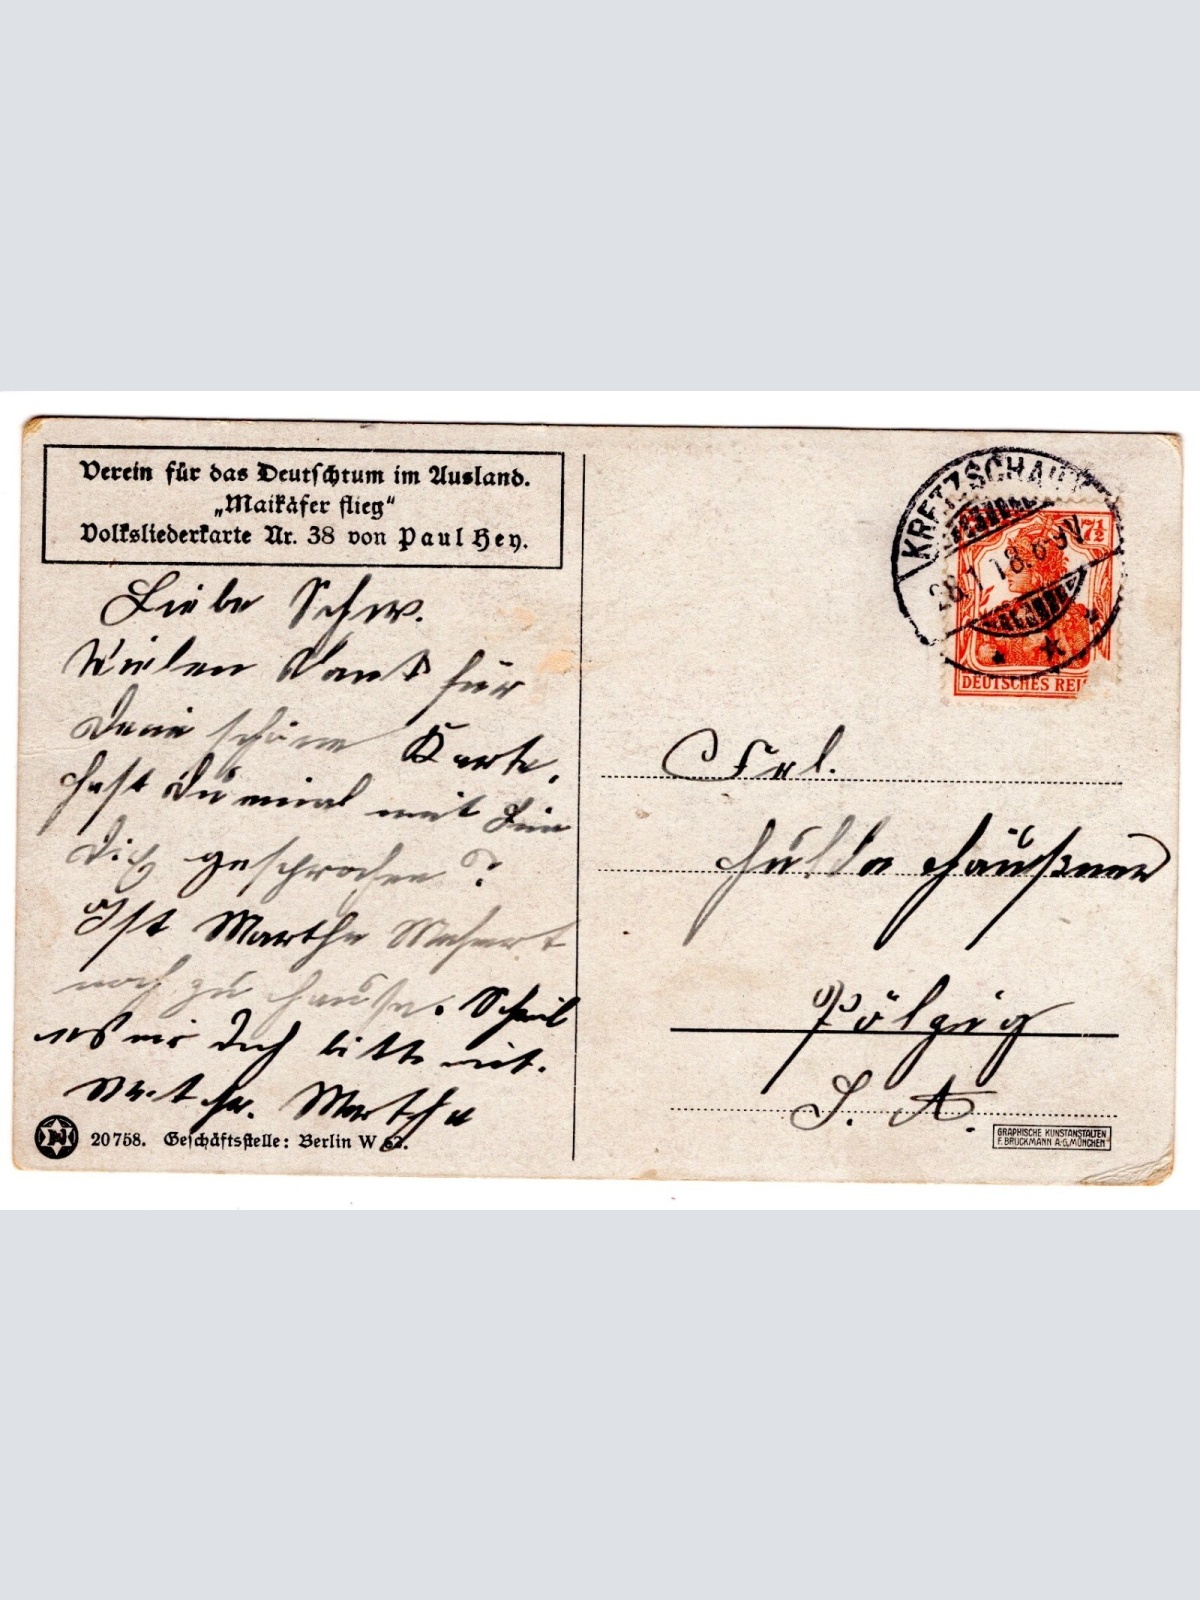 Verein für das Deutschtum im Ausland.
„Maikäfer flieg“
Volksliederkarte Nr. 38 von Paul Hey.
Liebe Schw.
Vielen Dank für
Deine schöne Karte.
Hast Du einmal mit
gesprochen?
Ist Marthe
noch zu Hause. Schreib
es mir doch bitte mit.
Marthe
20758. Geschäftsstelle: Berlin W 62.
KRETZSCHAU
28.1.18.6-7N
7½
DEUTSCHES REI
Frl.
Hulda Häußner
Pölzig
S. A.
GRAPHISCHE KUNSTANSTALTEN
F. BRUCKMANN A.-G. MÜNCHEN